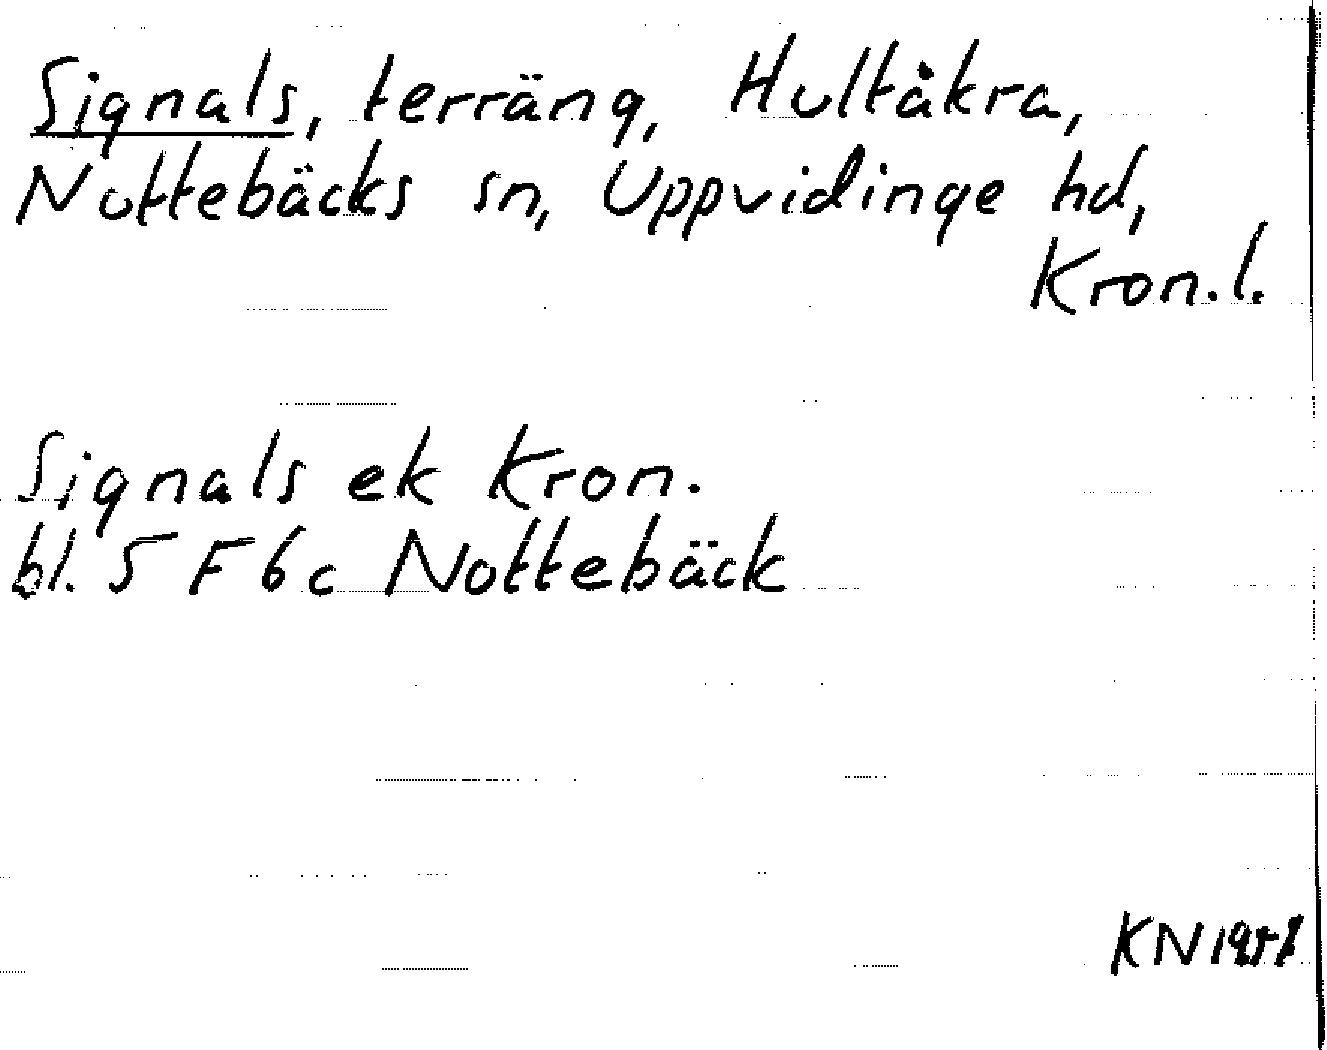 Signals, terräng, Hultåkra,
Nottebäcks sn, Uppvidinge hd,
Kron.l.
Signals ek Kron.
bl. 5 F 6 c Nottebäck
KN